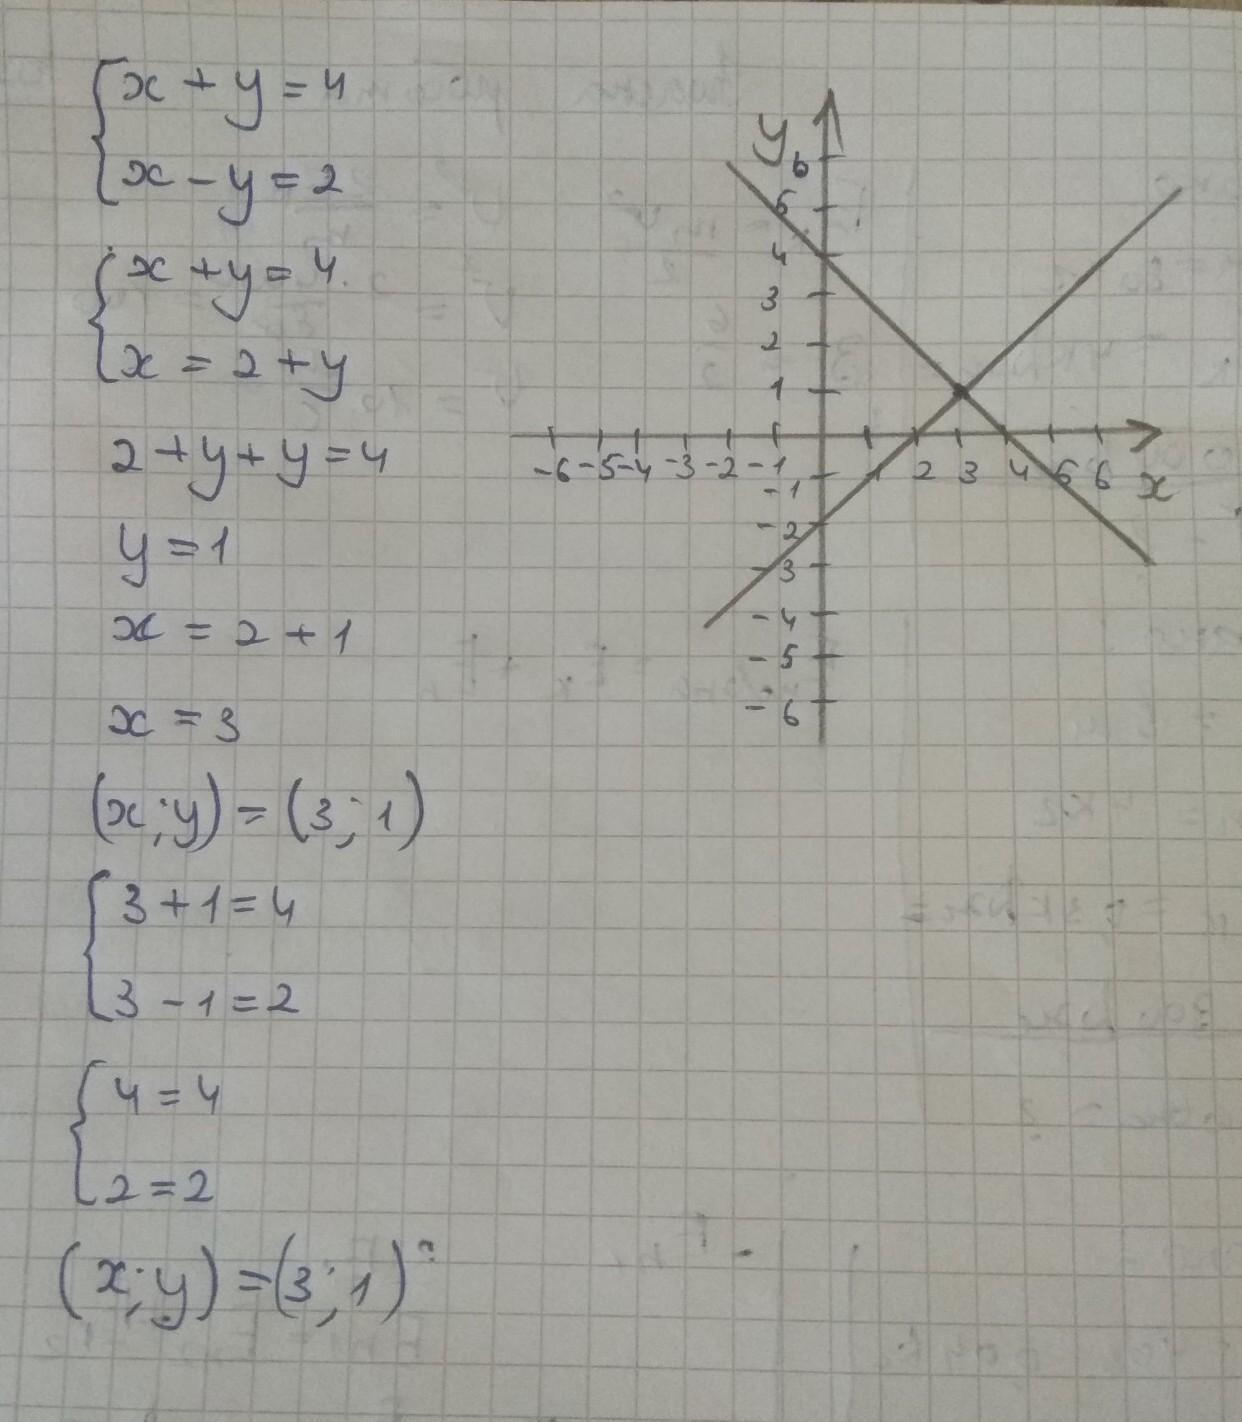 x + y = 4
x - y = 2
x + y = 4
x = 2 + y
2 + y + y = 4
y = 1
x = 2 + 1
x = 3
(x; y) = (3; 1)
3 + 1 = 4
3 - 1 = 2
4 = 4
2 = 2
(x; y) = (3; 1)
y
6
5
4
3
2
1
-6 -5 -4 -3 -2 -1 2 3 4 5 6 x
-1
-2
-3
-4
-5
-6